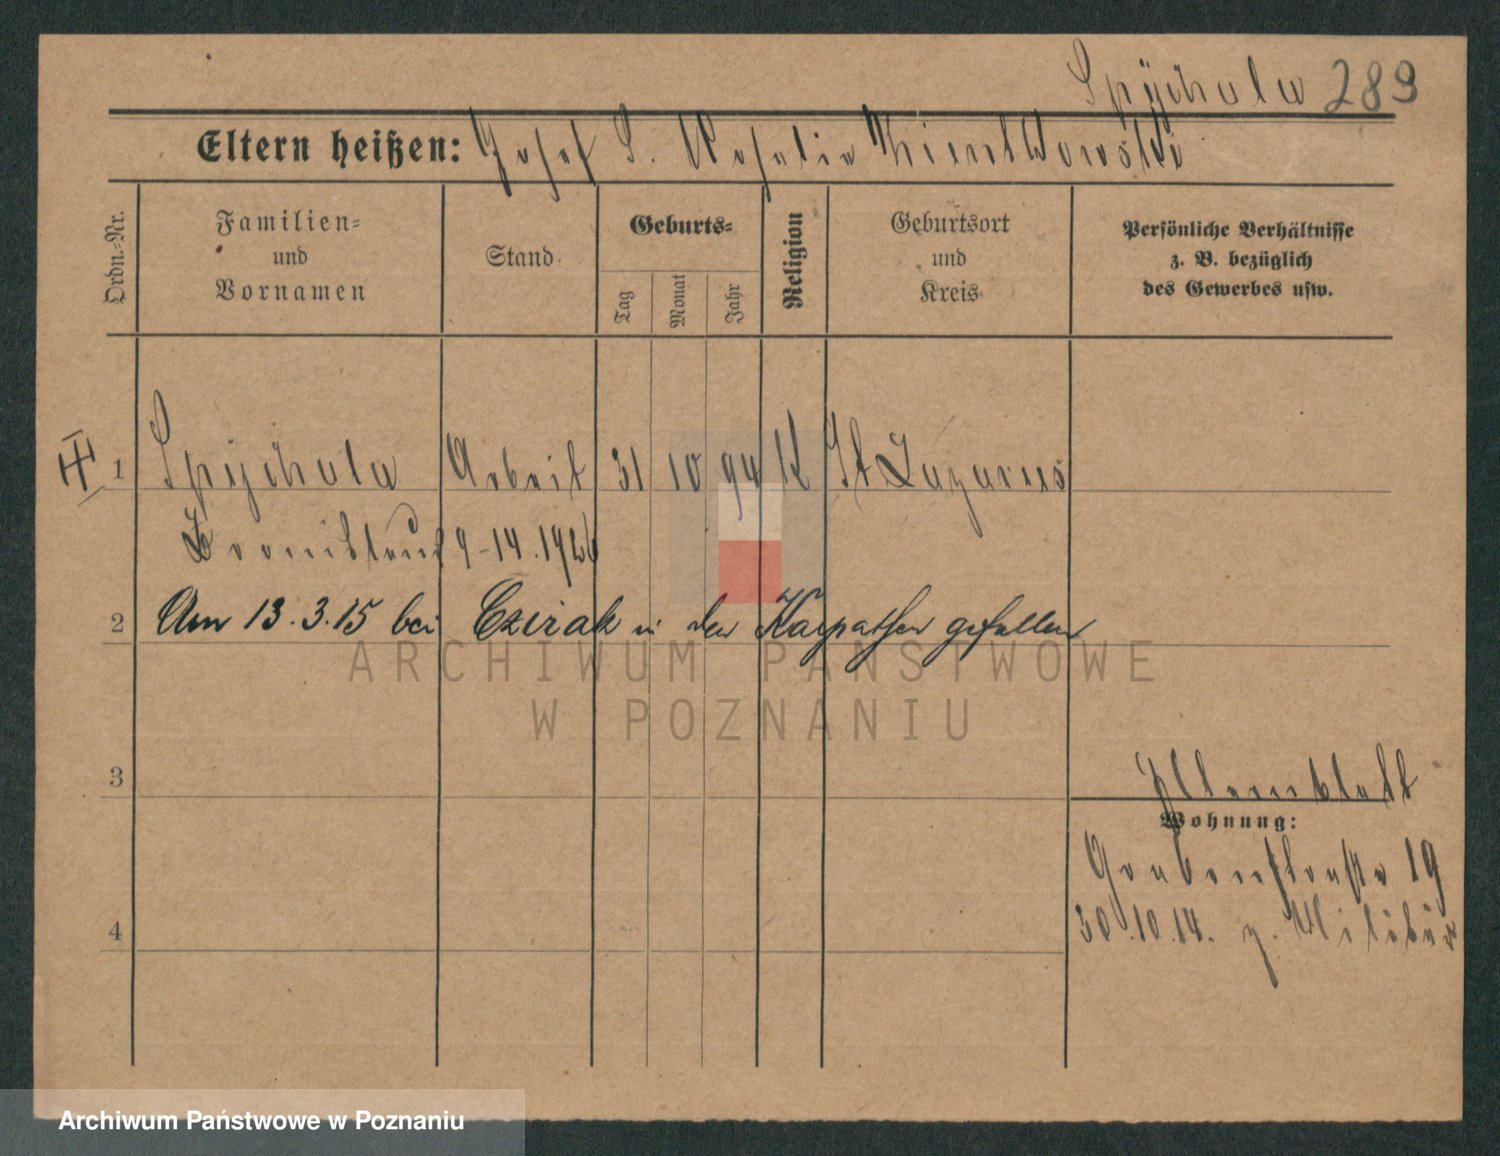 Spÿchala 289
Eltern heißen: Josef S. Rosalie Kwientkowski
Ordn.-Nr.
Familien-
und
Vornamen
Stand
Geburts-
Tag
Monat
Jahr
Religion
Geburtsort
und
Kreis
Persönliche Verhältnisse
z. B. bezüglich
des Gewerbes usw.
1 Spÿchala Arbeit 31 10 94 K St Lazarus
Bronislaus
2 Am 13.3.15 bei Czirak in den Karpathen gefallen
ARCHIWUM PAŃSTWOWE
W POZNANIU
3
Elternblatt
Wohnung:
Grabenstraße 19
4
30.10.14. z. Militär
Archiwum Państwowe w Poznaniu